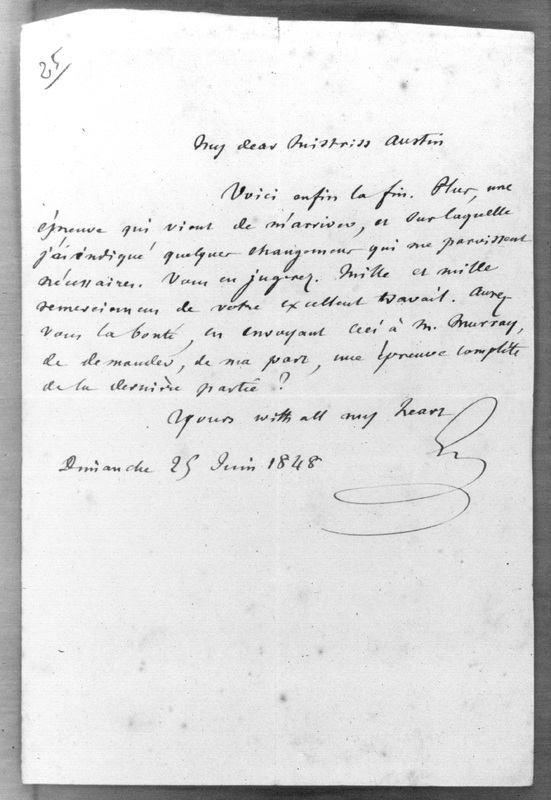 25
My dear Mistriss Austin
Voici enfin la fin. Plus, une
épreuve qui vient de m'arriver, et sur laquelle
j'ai indiqué quelques changemens qui me paroissent
nécessaires. Vous en jugerez. Mille et mille
remerciemens de votre excellent travail. Aurez
vous la bonté, en envoyant ceci à M. Murray,
de demander, de ma part, une épreuve complète
de la dernière partie ?
Yours with all my heart
Dimanche 25 Juin 1848